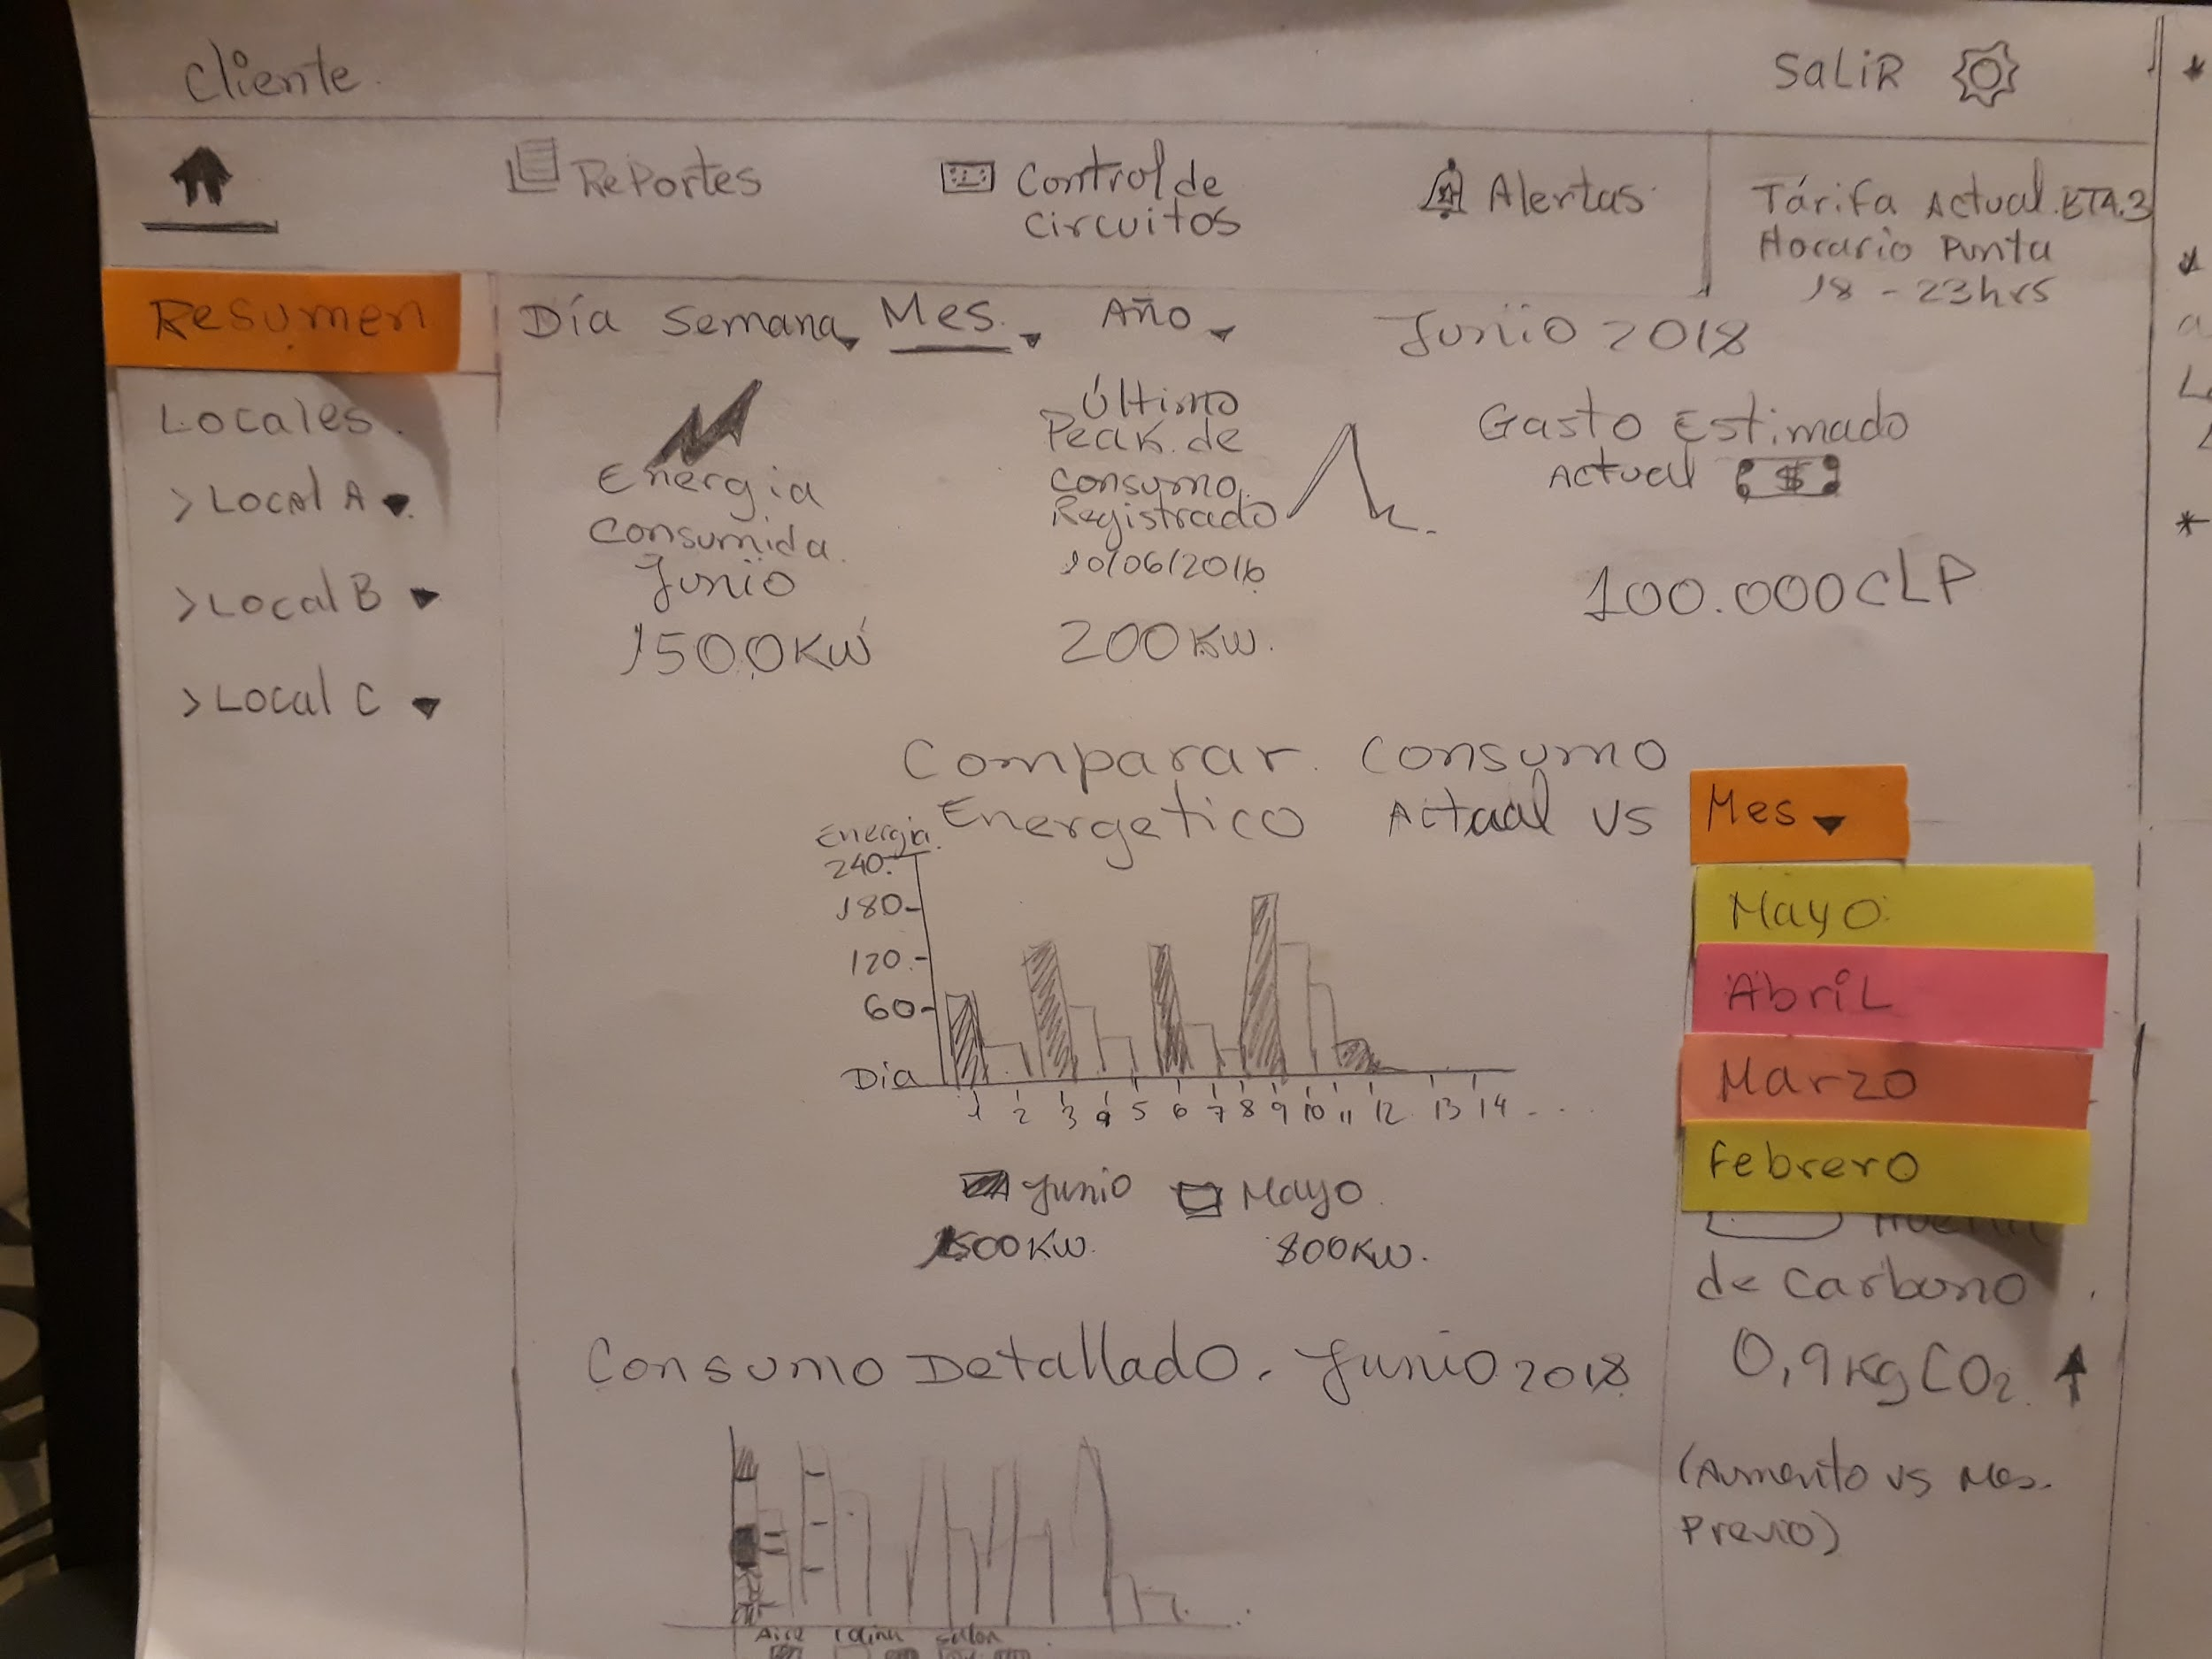 Cliente
SaLiR
Reportes
Control de
circuitos
Alertas
Tárifa Actual. BT4.3
Horario Punta
18 - 23hrs
Resumen
Día Semana Mes. Año
Junio 2018
Locales.
> Local A
> Local B
> Local C
Energia
Consumida.
Junio
1500KW
Último
Peak. de
consumo.
Registrado
10/06/2018
200KW.
Gasto Estimado
Actual $
100.000CLP
Comparar. Consumo
Energetico Actual VS
Mes
Mayo
Abril
Marzo
febrero
Energia.
240.
180
120.
60
Dia
1 2 3 4 5 6 7 8 9 10 11 12 13 14 ...
Junio Mayo
1500KW. 800KW.
Huella
de Carbono
0,9 Kg CO2
(Aumento vs Mes.
Previo)
Consumo Detallado. Junio 2018
Aire Cocina Salon